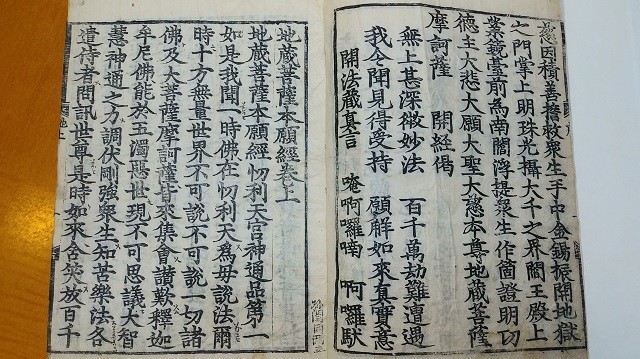 慈因積善誓救衆生手中金錫振開地獄
之門掌上明珠光攝大千之界閻王殿上
業鏡臺前爲南閻浮提衆生作箇證明功
德主大悲大願大聖大慈本尊地藏菩薩
摩訶薩　開經偈
無上甚深微妙法　百千萬劫難遭遇
我今聞見得受持　願解如來真實意
開法藏真言　唵啊囉喃　啊囉馱
地藏菩薩本願經卷上
地藏菩薩本願經忉利天宮神通品第一
如是我聞一時佛在忉利天爲母說法爾
時十方無量世界不可說不可說一切諸
佛及大菩薩摩訶薩皆來集會讚歎釋迦
牟尼佛能於五濁惡世現不可思議大智
慧神通之力調伏剛強衆生知苦樂法各
遣侍者問訊世尊是時如來含笑放百千